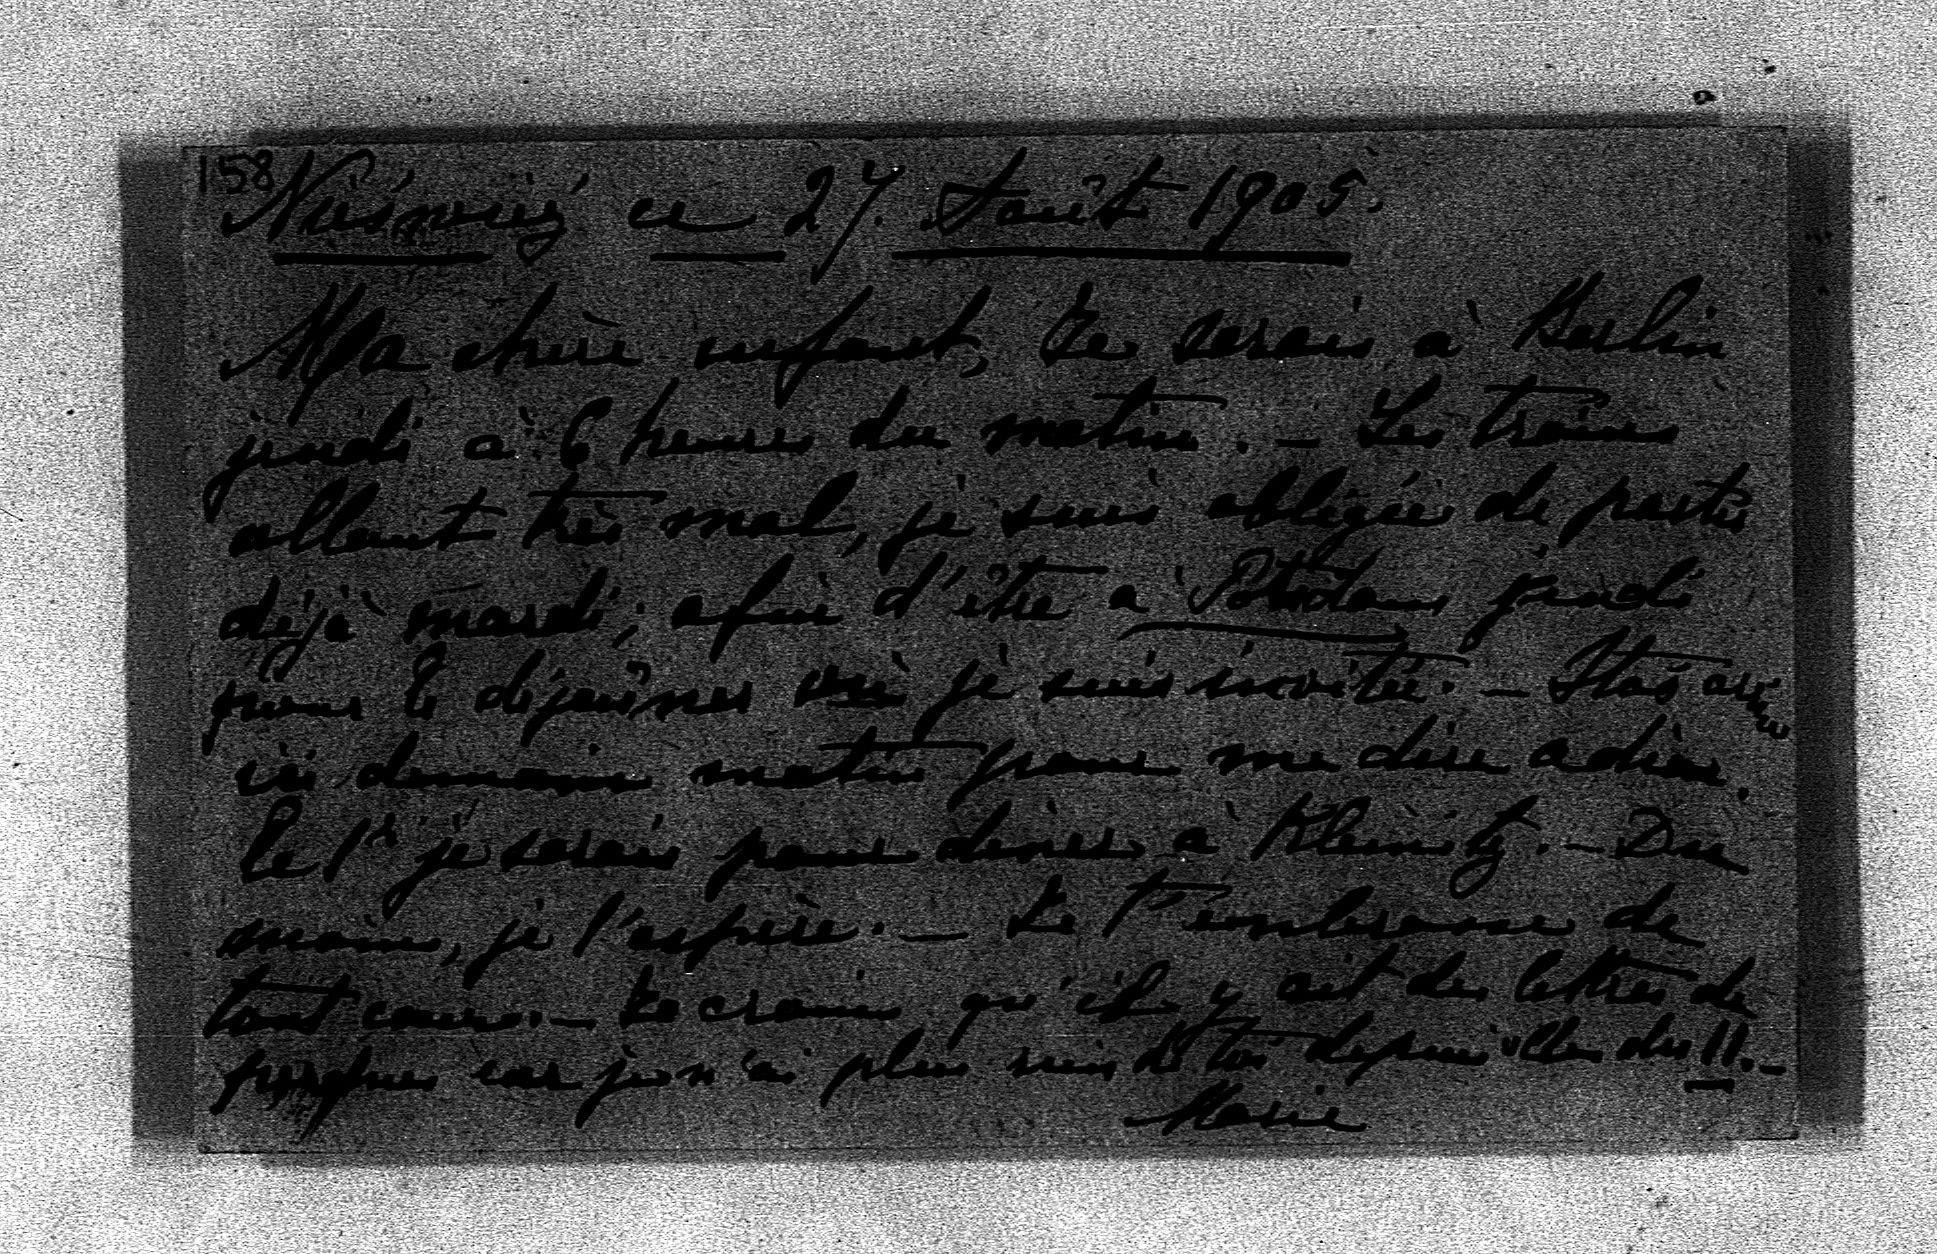 158 Nieśwież ce 27. Août 1905.
Ma chère enfant, Je serais à Berlin
jeudi à 6 heures du matin. — Les trains
allant très mal, je suis obligée de partir
déjà mardi, afin d'être à Potsdam jeudi
pour le déjeûner où je suis invitée. — Stas arrive
ici demain matin pour me dire adieu.
Le 1r je serais pour dîner à Kleinitz. — Du
moins, je l'espère. — Je t'embrasse de
tout cœur. — Je crains qu'il y ait des lettres de
perdues car je n'ai plus rien de toi depuis celles du 11. —
Marie